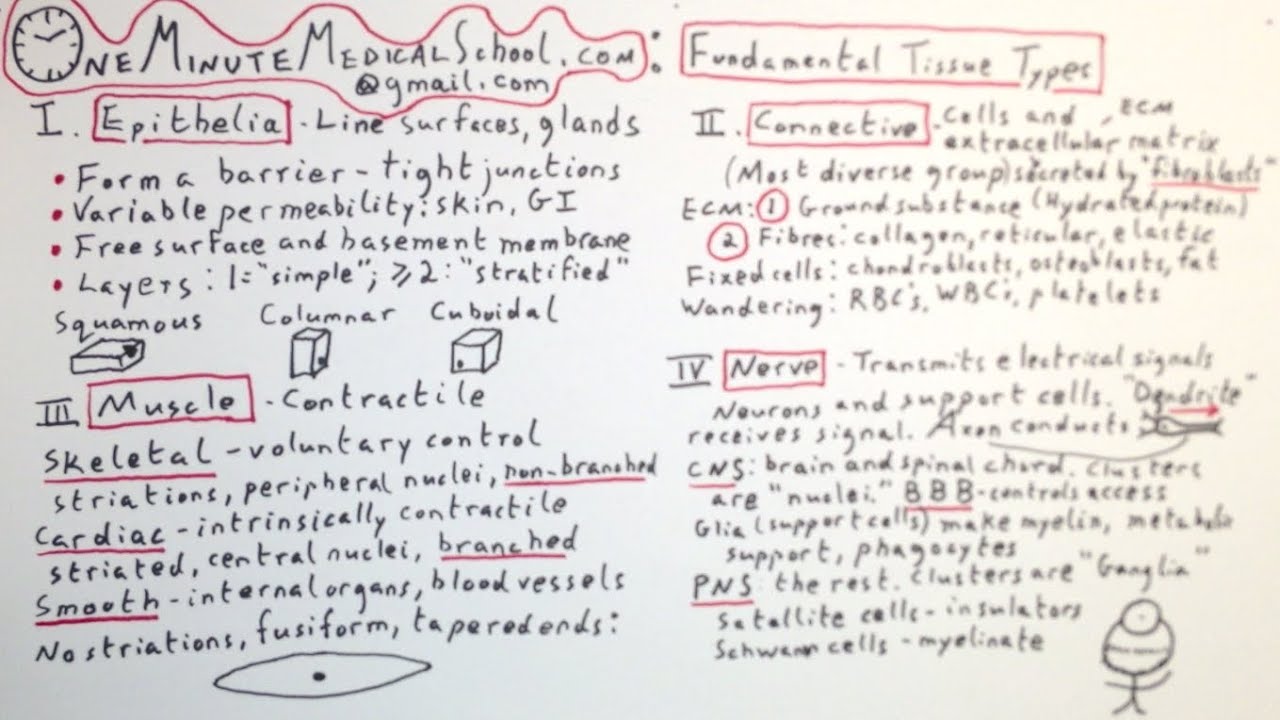 ONE MINUTE MEDICAL SCHOOL.COM:
@gmail.com
Fundamental Tissue Types
I. Epithelia - Line surfaces, glands
• Form a barrier - tight junctions
• Variable permeability: skin, GI
• Free surface and basement membrane
• Layers: 1="simple"; ≥2: "stratified"
Squamous Columnar Cuboidal
II. Connective - Cells and , ECM
extracellular matrix
(Most diverse group) secreted by "fibroblasts"
ECM: 1 Ground substance (Hydrated protein)
2 Fibres: collagen, reticular, elastic
Fixed cells: chondroblasts, osteoblasts, fat
Wandering: RBC's, WBC's, platelets
III Muscle - Contractile
Skeletal - voluntary control
striations, peripheral nuclei, non-branched
Cardiac - intrinsically contractile
striated, central nuclei, branched
Smooth - internal organs, blood vessels
No striations, fusiform, tapered ends:
IV Nerve - Transmits electrical signals
Neurons and support cells. "Dendrite"
receives signal. Axon conducts
CNS: brain and spinal chord. Clusters
are "nuclei." BBB - controls access
Glia (support cells) make myelin, metabolic
support, phagocytes
PNS: the rest. Clusters are "Ganglia"
Satallite cells - insulators
Schwann cells - myelinate